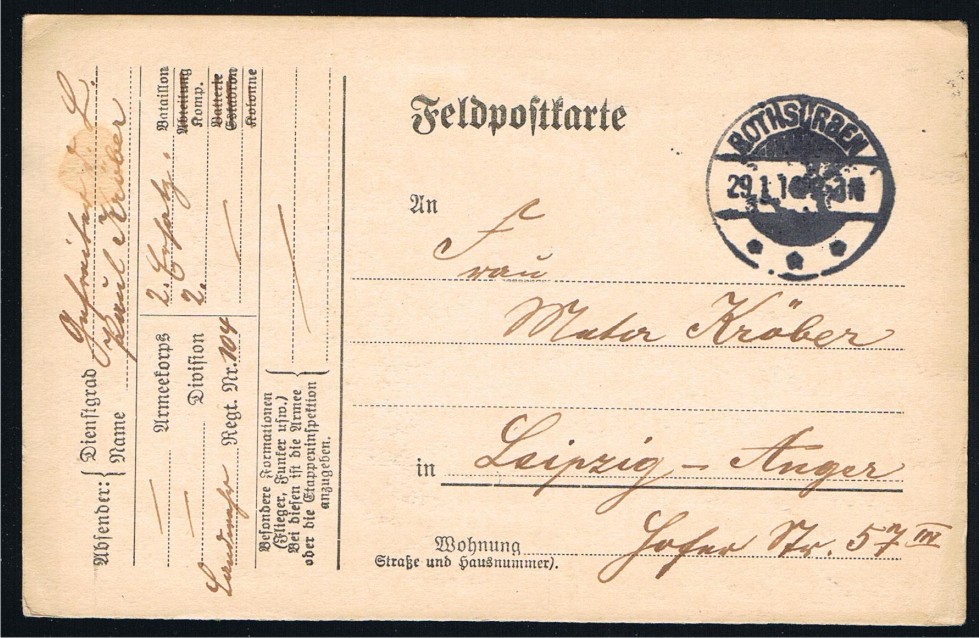 Feldpostkarte
BOTHSÜRBEN
29.1.16
An
Frau
Kröber
in Leipzig - Anger
Wohnung
Hofer Str. 57 III
Straße und Hausnummer).
Absender: { Dienstgrad Gefreiter d. L.
Name Paul Kröber
— Armeekorps 2. Ersatz. Bataillon
Abteilung
— Division 2. Komp.
Batterie
Landwehr Regt. Nr. 104 — Eskadron
Kolonne
Besondere Formationen
(Flieger, Funker usw.)
Bei diesen ist die Armee
oder die Etappeninspektion
anzugeben.